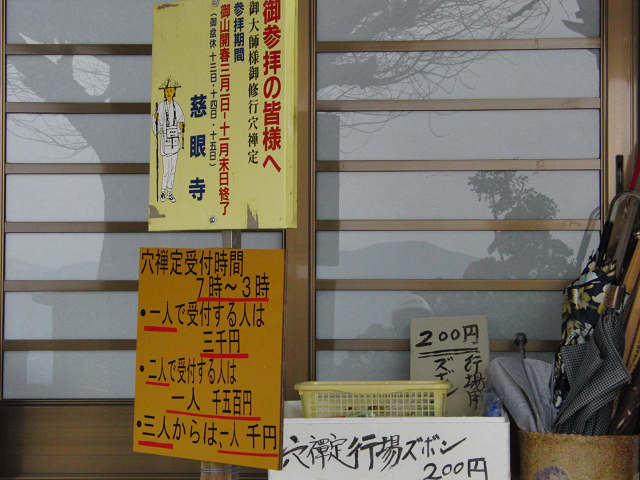 御参拝の皆様へ
御大師様御修行穴禅定
御山開春三月一日~十一月末日終了
参拝期間
(御盆休 十三日・十四日・十五日)
慈眼寺
穴禅定受付時間
7時~3時
・一人で受付する人は
三千円
・二人で受付する人は
一人 千五百円
・三人からは、一人 千円
200円
ズボン
行場用
穴禅定行場ズボン
200円